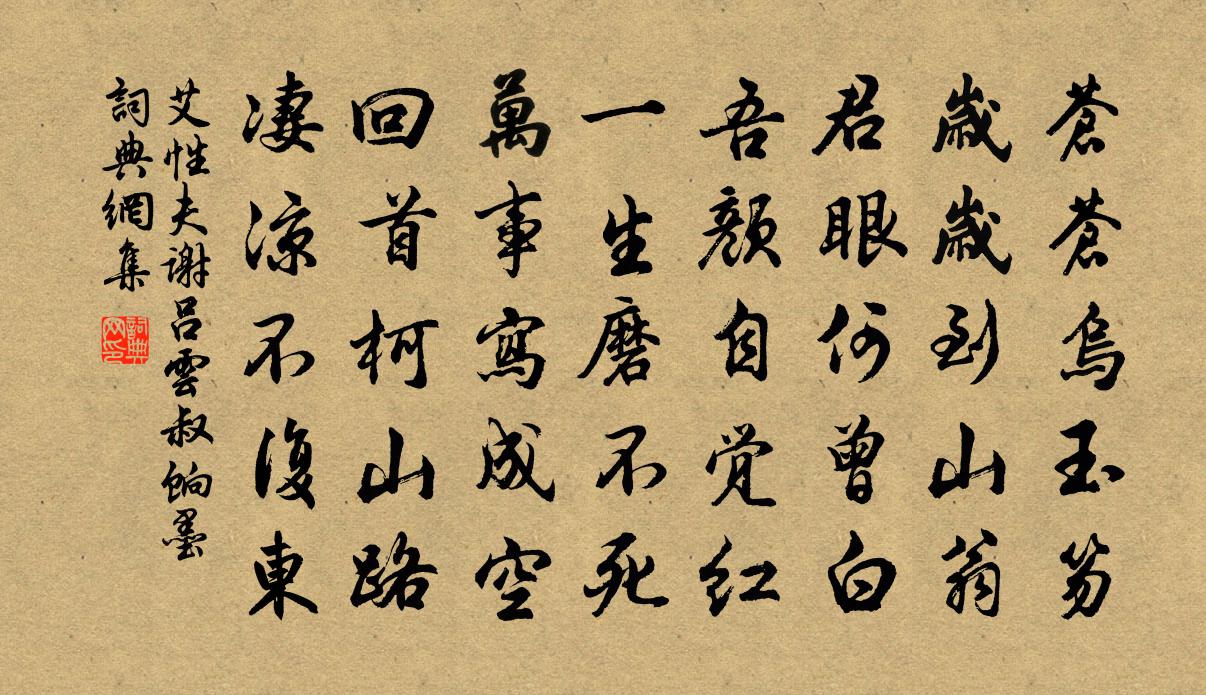 蒼蒼烏玉笏
歲歲到山翁
君眼何曾白
吾顏自覺紅
一生磨不死
萬事寫成空
回首柯山路
淒涼不復東
艾性夫謝呂雲叔餉墨
詞典網集
詞典
网印